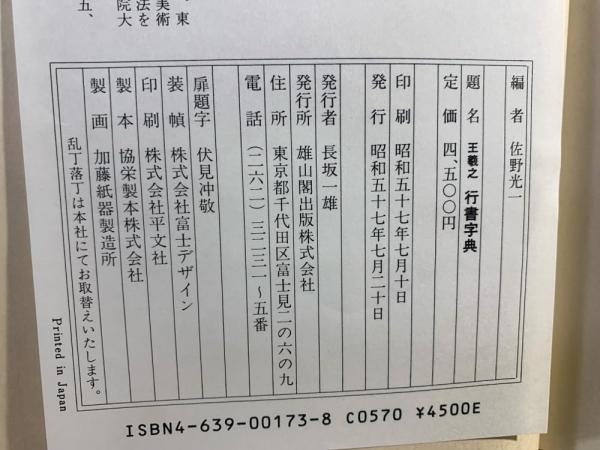 、東
美術
法を
院大
五、
編者　佐野光一
題名　王羲之　行書字典
定価　四、五〇〇円
印刷　昭和五十七年七月十日
発行　昭和五十七年七月二十日
発行者　長坂一雄
発行所　雄山閣出版株式会社
住所　東京都千代田区富士見二の六の九
電話　（二六二）三二三一〜五番
扉題字　伏見冲敬
装幀　株式会社富士デザイン
印刷　株式会社平文社
製本　協栄製本株式会社
製画　加藤紙器製造所
乱丁落丁は本社にてお取替えいたします。
Printed in Japan
ISBN4-639-00173-8 C0570 ¥4500E